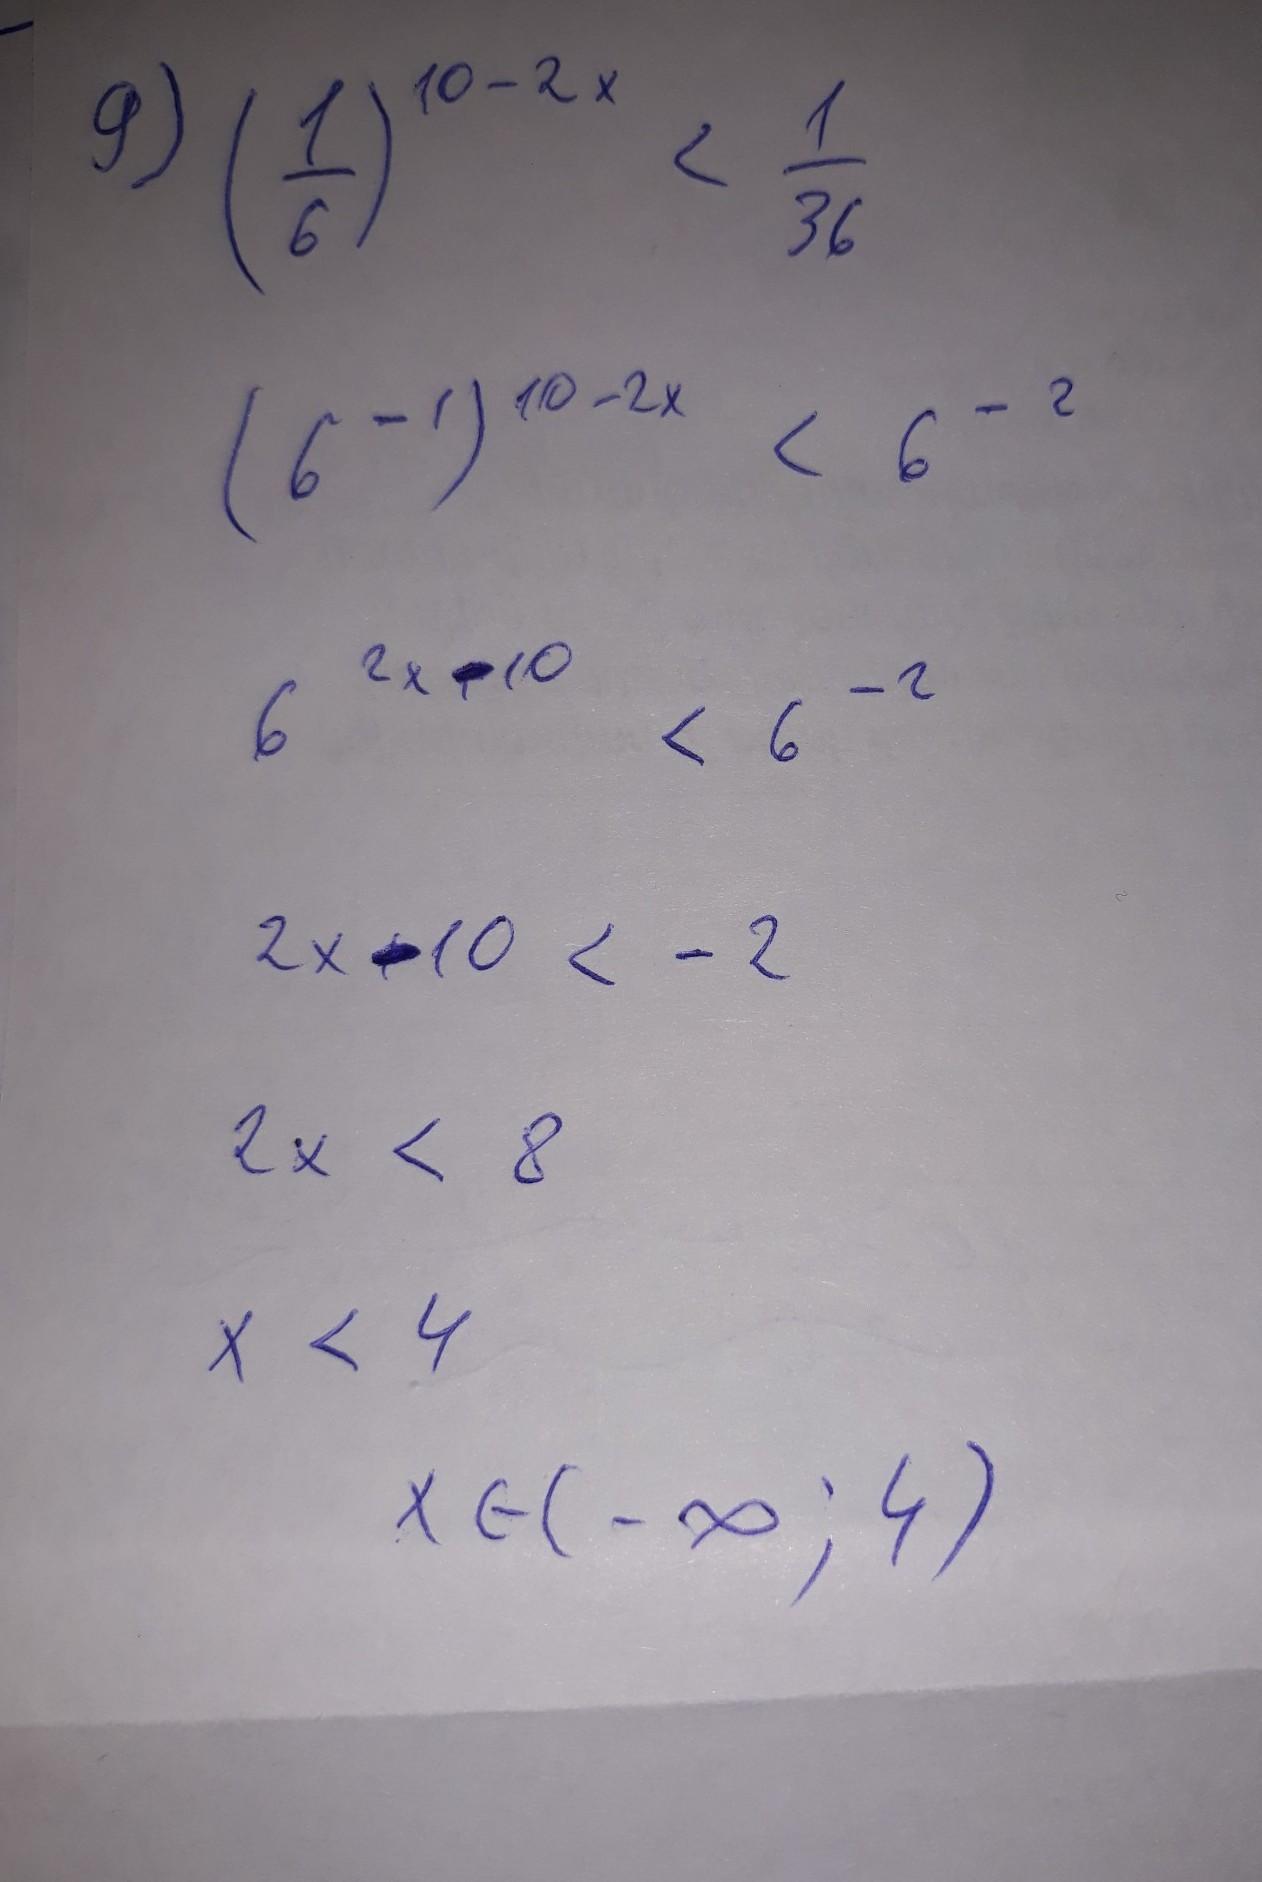 9) (1/6)^(10-2x) < 1/36
(6^-1)^(10-2x) < 6^-2
6^(2x-10) < 6^-2
2x-10 < -2
2x < 8
x < 4
x∈(-∞; 4)